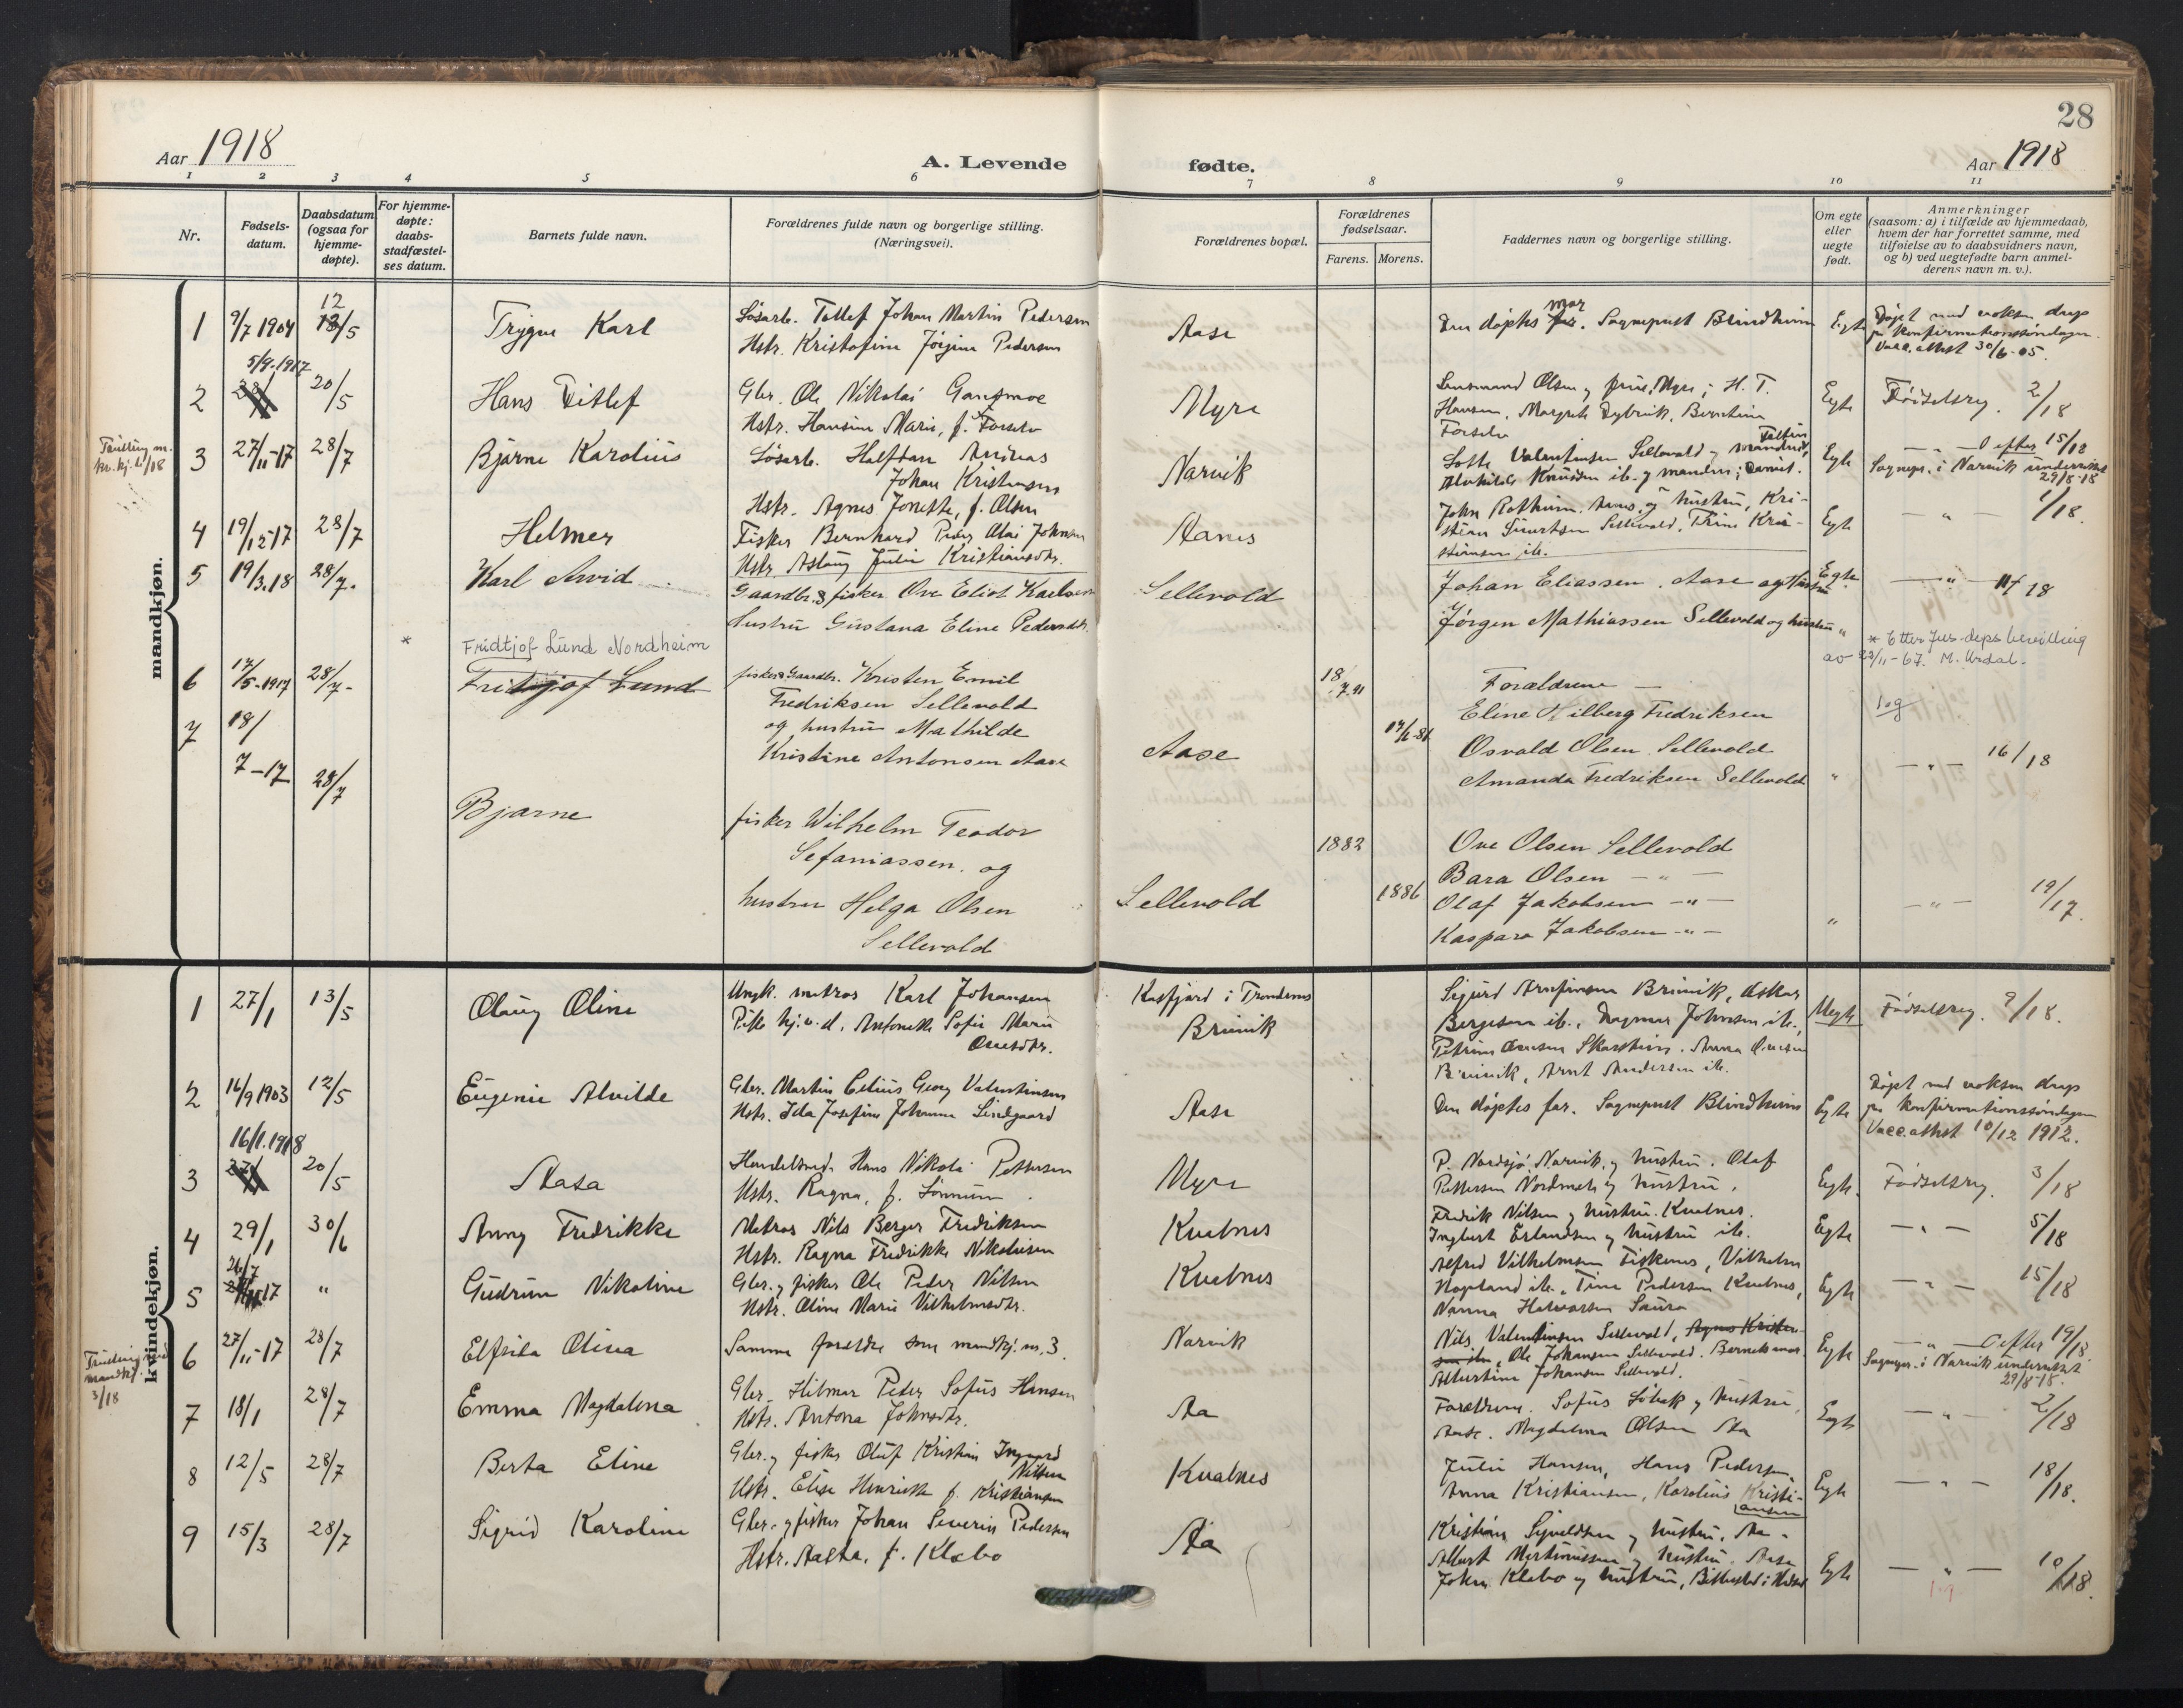 28
Aar 1918
A. Levende fødte.
Aar 1918
1 2 3 4 5 6 7 8 9 10 11
Nr.
Fødsels-datum.
Daabsdatum (ogsaa for hjemme-døpte).
For hjemme-døpte: daabs-stadfæstel-ses datum.
Barnets fulde navn.
Forældrenes fulde navn og borgerlige stilling. (Næringsvei).
Forældrenes bopæl.
Forældrenes fødselsaar.
Farens. Morens.
Faddernes navn og borgerlige stilling.
Om egte eller uegte født.
Anmerkninger (saasom: a) i tilfælde av hjemmedaab, hvem der har forrettet samme, med tilføielse av to daabsvidners navn, og b) ved uegtefødte barn anmel-derens navn m. v.).
mandkjøn.
1 9/7 1904 12/5 Trygve Karl
Løsarb. Tollef Johan Martin Pedersen
Hstr. Kristofine Jørgine Pedersen
Aase
Den døptes mor. Sogneprest Blindheim
Egte
Døpt med voksen daap
på konfirmationssøndagen.
Vacc.attest 30/6-05.
2 5/9-1917 20/5 Hans Ditlef
Gbr. Ole Nikolai Gansmoe
Hstr. Hansine Marie, f. Forselv
Myre
Lensmand Olsen og frue, Myre; H. T.
Hansen, Margrete Dybvik, Berntine
Forselv
Egte
Fødselsreg. 2/18
Tvilling m.
kv.kj. 6/18
3 27/11-17 28/7 Bjarne Karolius
Løsarb. Halfdan Andreas
Johan Kristensen
Hstr. Agnes Jonette, f. Olsen
Narvik
Lotte Valentinsen Sellevold og
Alvhilde Knudsen ib. og manden; Daniel.
Egte
— " — 15/18
Sognepr. i Narvik underrettet
29/8-18
4 19/12-17 28/7 Helmer
Fisker Bernhard Peder Olai Johnsen
Hstr. Aslaug Julie Kristiansdtr.
Aanes
John Rotheim. Aanes og hustru, Kri-
stian Sivertsen Sellevold. Trine Kri-
stiansen ib.
Egte
— " — 1/18.
5 19/3.18 28/7. Karl Arvid
Gaardbr. & fisker Ove Eliot Karlsen
Hustru Gustava Eline Pedersdtr.
Sellevold
Johan Eliassen. Aase og Hustru
Jørgen Mathiassen Sellevold og hustru
Egte
— " — 11/18
* Fridtjof Lund Nordheim
* Etter Jus-deps bevilling
av 23/11-67. M. Urdal.
6 17/5-1917 28/7- Fritjof Lund
fisker & Gaardbr. Kristen Emil
Fredriksen Sellevold
og hustru Mathilde
Kristine Antonsen Aase
Aase
18/7.91
17/6-86
Forældrene —
Eline Hilberg Fredriksen
Osvald Olsen Sellevold
Amanda Fredriksen Sellevold
"
— " — 16/18
7 18/7-17 28/7 Bjarne
fisker Wilhelm Teodor
Sefaniassen. og
hustru Helga Olsen
Sellevold
Sellevold
1882
1886
Ove Olsen Sellevold
Bara Olsen — " —
Olaf Jakobsen — " —
Kaspara Jakobsen — " —
"
— " — 19/17.
kvindekjøn.
1 27/1 13/5 Olaug Oline
Ungk. matros Karl Johansen
Pike hj.v.d. Antonette Sofie Marie
Ovesdtr.
Kasfjord i Trondenes
Breivik
Sigurd Arnfinsen Breivik, Oskar
Bergesen ib., Dagmar Johnsen ib.,
Petrine Ovesen Skarstein. Anna Ovesen
Breivik, Arnt Andersen ib.
Uegte
Fødselsreg. 9/18.
2 16/9 1903 12/5 Eugenie Alvilde
Gbr. Martin Celius Georg Valentinsen
Hstr. Ida Josefine Johanna Lindgaard
Aase
Den døptes far. Sogneprest Blindheim
Egte
Døpt med voksen daap
på konfirmationssøndagen
Vacc.attest 10/12 1912.
3 16/1.1918 20/5 Aasa
Handelsmd. Hans Nikolai Pettersen
Hstr. Ragna, f. Lønnum
Myre
P. Nordsjø, Narvik, og hustru. Olaf
Pettersen Nordmela og hustru.
Egte.
Fødselsreg. 3/18
4 29/1 30/6 Anny Fredrikke
Matros Nils Berger Fredriksen
Hstr. Ragna Fredrikke Nikolaisen
Kvalnes
Fredrik Nilsen og hustru. Kvalnes.
Ingbert Erlandsen og hustru ib.
Egte
— " — 5/18
5 26/7 17 " Gudrun Nikoline
Gbr. og fisker Ole Peder Nilsen
Hstr. Oline Marie Vilhelmsdtr.
Kvalnes
Alfred Vilhelmsen Fiskenes, Vilhelm
Hopland ib., Tine Pedersen Kvalnes,
Nanna Halvorsen Saura
Egte
— " — 15/18
Tvilling med
mandkj.
3/18
6 27/11-17 28/7 Elfrida Olina
Samme foreldre som mandkj. nr. 3.
Narvik
Nils Valentinsen Sellevold, Agnes Kristen-
sen ib., Ole Johansen Sellevold. Barnets mor.
Albertine Johansen Sellevold.
Egte
— " — 19/18.
Sognepr. i Narvik underrettet
29/8-18.
7 18/1 28/7 Emma Magdalena
Gbr. Hilmar Peder Sofus Hansen
Hstr. Antona Johnsdtr.
Aa
Forældrene. Sofus Lobak og hustru,
Aase. Magdalena Olsen Aa
Egte
— " — 2/18
8 12/5 28/7 Berta Eline
Gbr. og fisker Oluf Kristian Ingvard
Nilsen
Hstr. Elise Henrikke f. Kristiansen
Kvalnes
Julie Hansen, Hans Pedersen,
Anna Kristiansen, Karolius Kristi-
ansen
Egte
— " — 18/18.
9 15/3 28/7 Sigrid Karoline
Gbr. og fisker Johan Severin Pedersen
Hstr. Aasta, f. Klæbo
Aa
Kristian Sivaldsen og hustru. Aa.
Albert Martinussen og hustru. Aase
Johan Klæbo og hustru,
Egte
— " — 10/18.